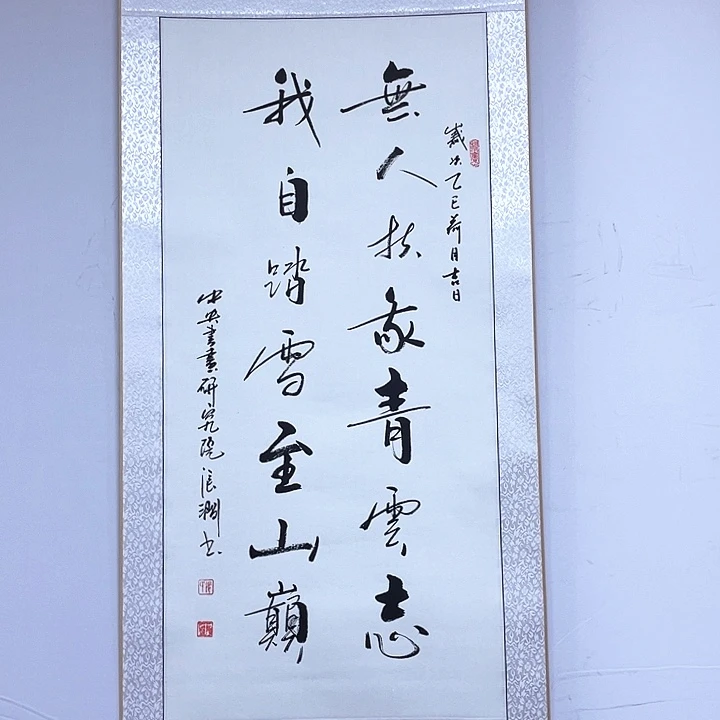 歲次乙巳荷月吉日
無人扶我青雲志
我自踏雪至山巔
中央書畫研究院張淵書